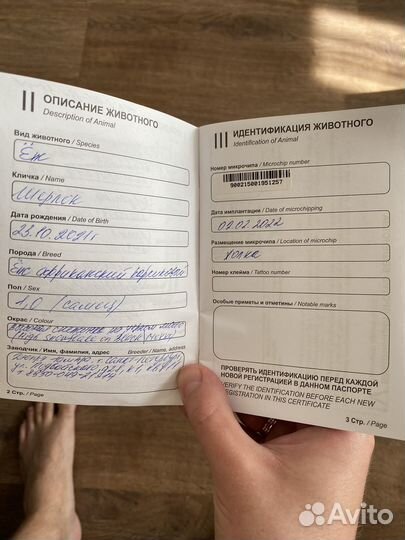 II ОПИСАНИЕ ЖИВОТНОГО
Description of Animal
Вид животного / Species
Ёж
Кличка / Name
Шерлок
Дата рождения / Date of Birth
23.10.2021г
Порода / Breed
Ёж африканский карликовый
Пол / Sex
1,0 (самец)
Окрас / Colour
Заводчик / Имя, фамилия, адрес Breeder / Name, address
2 Стр. / Page
III ИДЕНТИФИКАЦИЯ ЖИВОТНОГО
Identification of Animal
Номер микрочипа / Microchip number
900215001951257
Дата имплантации / Date of microchipping
02.02.2022
Размещение микрочипа / Location of microchip
холка
Номер клейма / Tattoo number
Особые приметы и отметины / Notable marks
ПРОВЕРЯТЬ ИДЕНТИФИКАЦИЮ ПЕРЕД КАЖДОЙ
НОВОЙ РЕГИСТРАЦИЕЙ В ДАННОМ ПАСПОРТЕ
VERIFY THE IDENTIFICATION BEFORE EACH NEW
REGISTRATION IN THIS CERTIFICATE
3 Стр. / Page
Avito